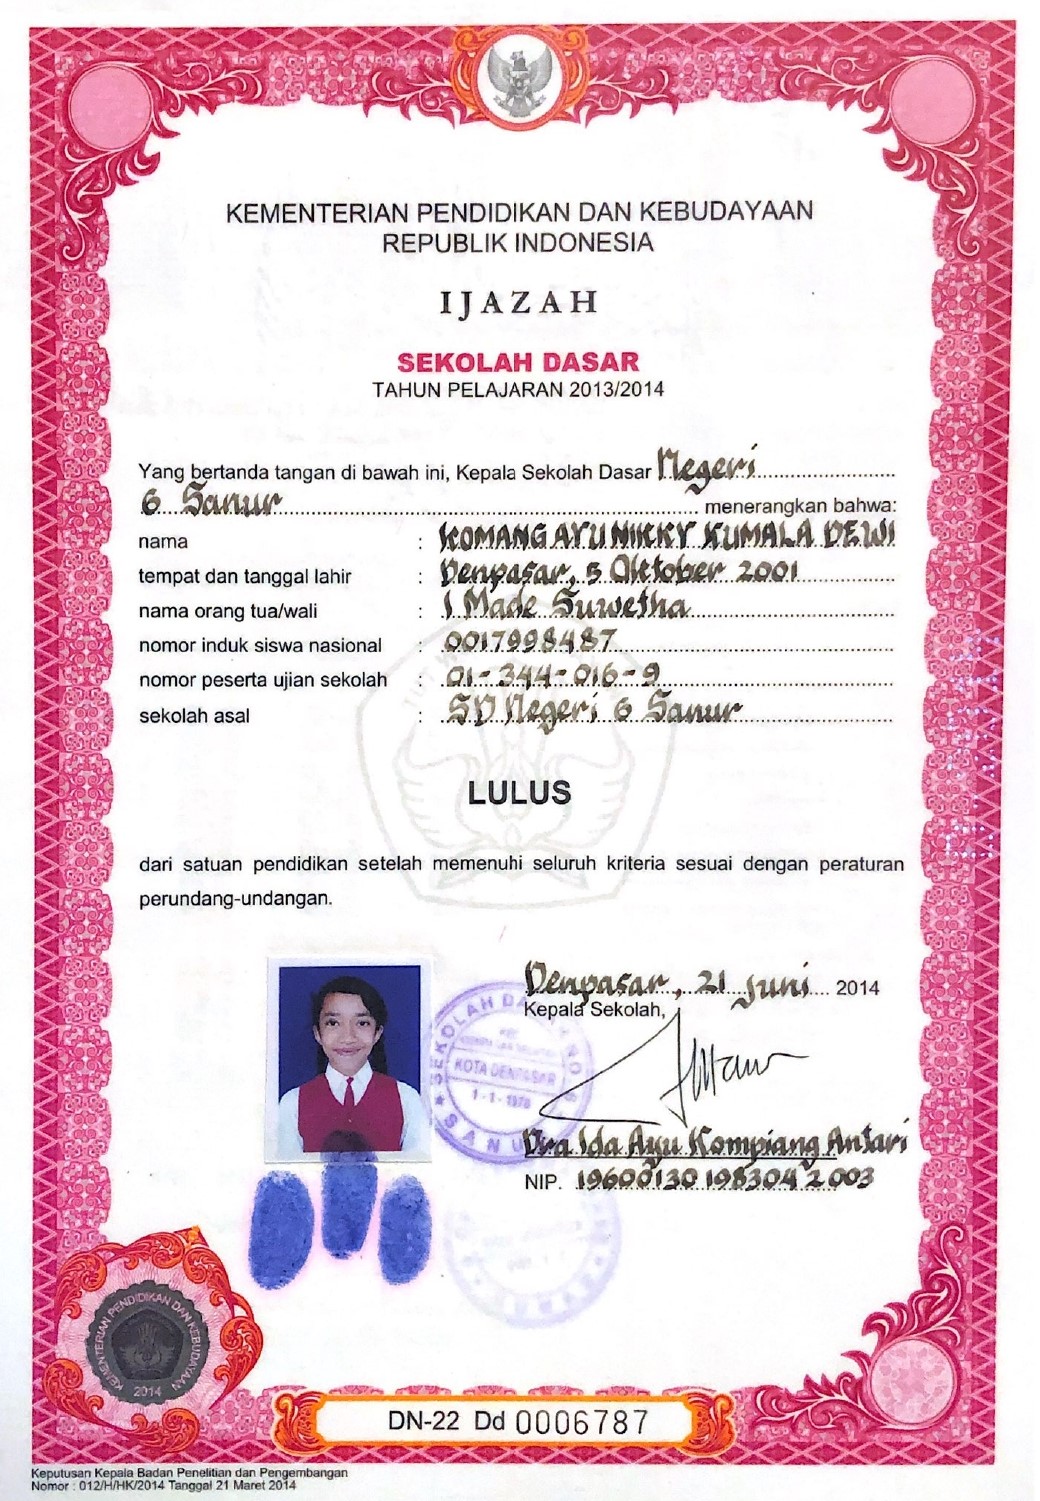 KEMENTERIAN PENDIDIKAN DAN KEBUDAYAAN
REPUBLIK INDONESIA
IJAZAH
SEKOLAH DASAR
TAHUN PELAJARAN 2013/2014
Yang bertanda tangan di bawah ini, Kepala Sekolah Dasar Negeri
6 Sanur menerangkan bahwa:
nama : KOMANG AYU NIKKY KUMALA DEWI
tempat dan tanggal lahir : Denpasar, 5 Oktober 2001
nama orang tua/wali : I Made Suwetha
nomor induk siswa nasional : 0017998487
nomor peserta ujian sekolah : 01-344-016-9
sekolah asal : SD Negeri 6 Sanur
LULUS
dari satuan pendidikan setelah memenuhi seluruh kriteria sesuai dengan peraturan
perundang-undangan.
Denpasar, 21 Juni 2014
Kepala Sekolah,
SEKOLAH DASAR
KOTA DENPASAR
1-1-1978
SANUR
Dra Ida Ayu Kompiang Antari
NIP. 19600130 198304 2 003
KEMENTERIAN PENDIDIKAN DAN KEBUDAYAAN
2014
DN-22 Dd 0006787
Keputusan Kepala Badan Penelitian dan Pengembangan
Nomor : 012/H/HK/2014 Tanggal 21 Maret 2014